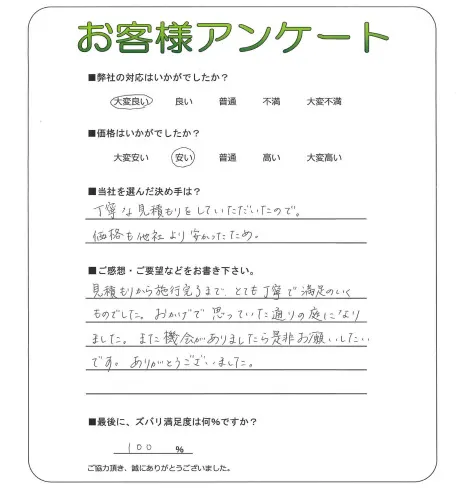 お客様アンケート
■弊社の対応はいかがでしたか？
大変良い　良い　普通　不満　大変不満
■価格はいかがでしたか？
大変安い　安い　普通　高い　大変高い
■当社を選んだ決め手は？
丁寧な見積もりをしていただいたので。
価格も他社より安かったため。
■ご感想・ご要望などをお書き下さい。
見積もりから施行完了まで、とても丁寧で満足のいく
ものでした。おかげで思っていた通りの庭になり
ました。また機会がありましたら是非お願いしたい
です。ありがとうございました。
■最後に、ズバリ満足度は何％ですか？
100 ％
ご協力頂き、誠にありがとうございました。